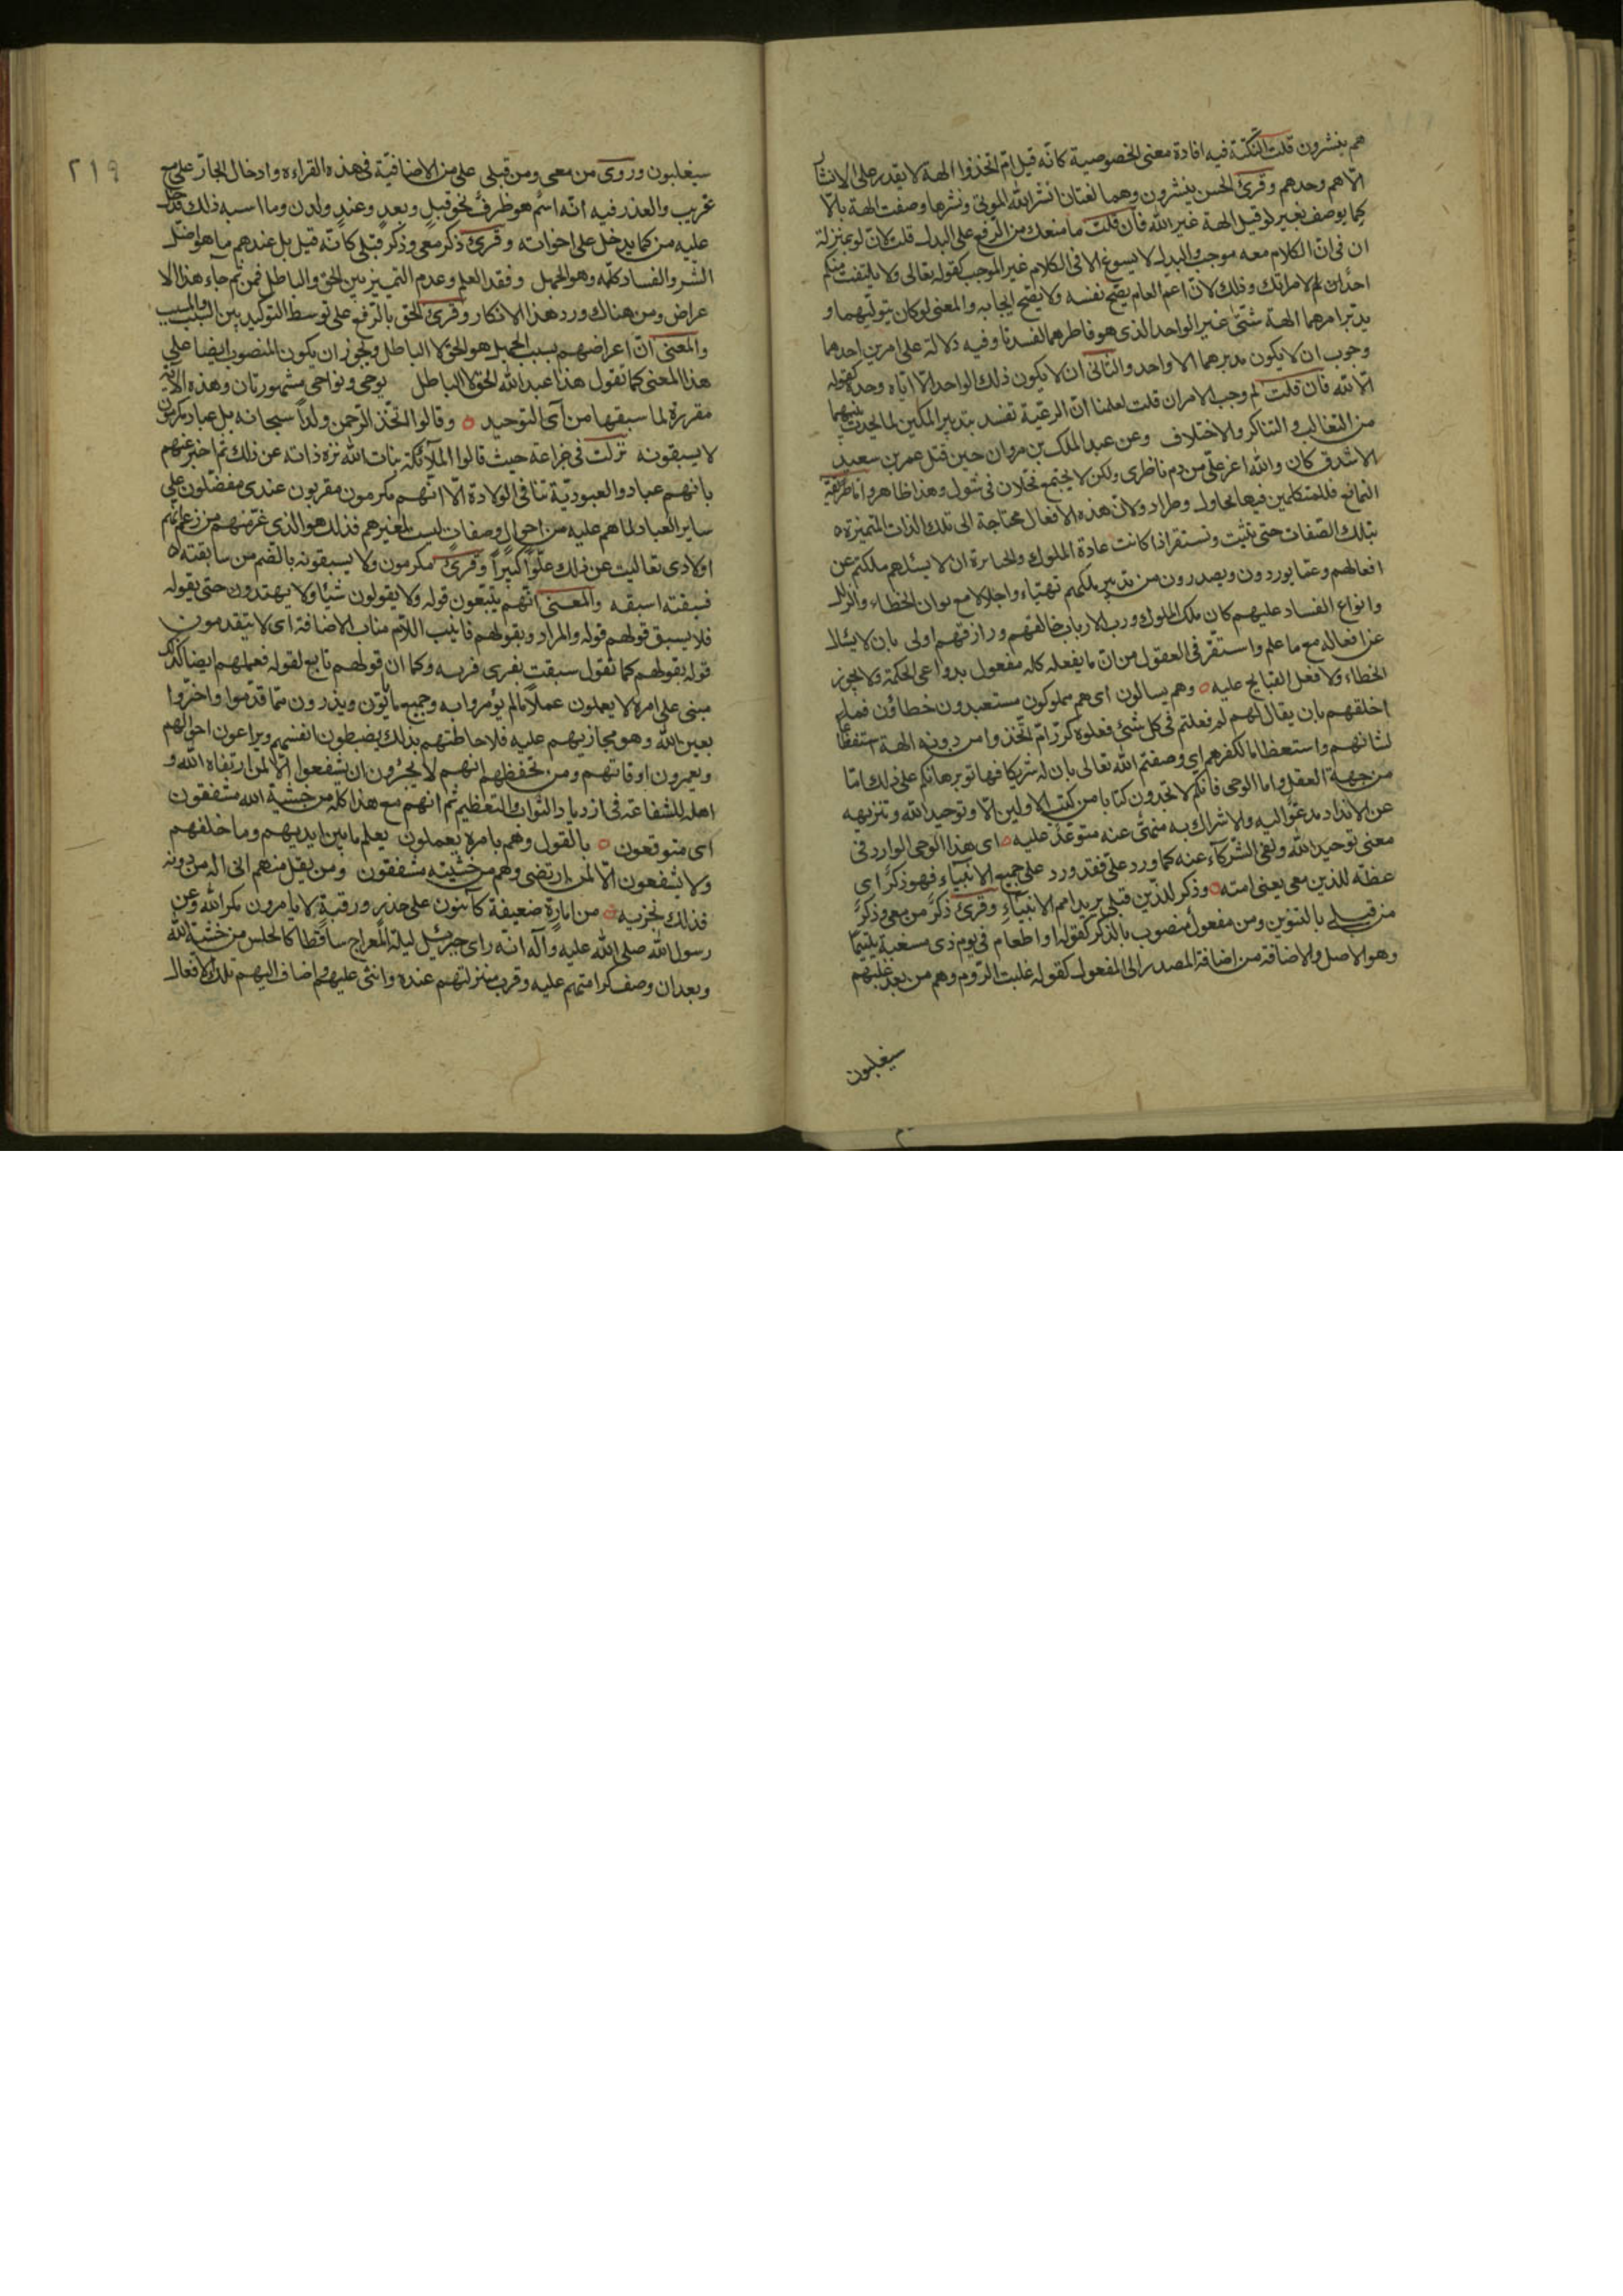 هم ينشرون قلت النكتة فيه افادة معنى الخصوصية كانه قيل ام اتخذوا الهة لا يقدر على الانشار
الا هم وحدهم وقرئ الحسن ينشرون وهما لغتان انشر الله الموتى ونشرها وصفت الهة بالا
كما يوصف بغير لو قيل الهة غير الله فان قلت ما منعك من الرفع على البدل قلت لان لو بمنزلة
ان فى ان الكلام معه موجب والبدل لا يسوغ الا فى الكلام غير الموجب كقوله تعالى ولا يلتفت منكم
احد الا امراتك وذلك لان اعم العام يصح نفسه ولا يصح ايجابه والمعنى لو كان يتوليهما و
يدبر امرهما الهة شتى غير الواحد الذى هو فاطرهما لفسدتا وفيه دلالة على امرين احدهما
وجوب ان لا يكون مدبرهما الا واحد والثانى ان لا يكون ذلك الواحد الا اياه وحده كقوله
الا الله فان قلت لم وجب الامران قلت لعلمنا ان الرعية تفسد بتدبير الملكين لما يحدث بينهما
من التغالب والتناكر والاختلاف وعن عبد الملك بن مروان حين قتل عمر بن سعيد
الاشدق كان والله اعز على من دم ناظرى ولكن لا يجتمع فحلان فى شول وهذا ظاهر واما طريقة
التمانع فللمتكلمين فيها تجاول وطراد ولان هذه الافعال محتاجة الى تلك الذات المتميزة ه
بتلك الصفات حتى تثبت وتستقر اذا كانت عادة الملوك والجبابرة ان لا يسئلهم ملكتهم عن
افعالهم وعما يوردون ويصدرون من تدبير ملكهم تهيئاء واجلالا مع جواز الخطاء والزلل
وانواع الفساد عليهم كان ملك الملوك ورب الارباب خالقهم ورازقهم اولى بان لا يسئل
عن افعاله مع ما علم واستقر فى العقول من ان ما يفعله كله مفعول بدواعى الحكمة ولا يجوز
الخطاء ولا فعل القبايح عليه ه وهم يسالون اى هم مملوكون مستعبدون خطاؤن فما
اخلقهم بان يقال لهم لم فعلتم فى كل شئ فعلوه كرر ام اتخذوا من دونه الهة استفظاعا
لشانهم واستعظاما لكفرهم اى وصفتم الله تعالى بان له شريكا فهاتوا برهانكم على ذلك اما
من جهة العقل واما الوحى فانكم لا تجدون كتابا من كتب الاولين الا وتوحيد الله وتنزيهه
عن الانداد مدعو اليه والاشراك به منهى عنه متوعد عليه ه اى هذا الوحى الوارد فى
معنى توحيد الله ونفى الشركاء عنه كما ورد على فقد ورد على جميع الانبياء فهو ذكر اى
عظة للذين معى يعنى امته ه وذكر للذين قبلى يريد امم الانبياء وقرئ ذكر من معى وذكر
من قبلى بالتنوين ومن مفعول منصوب بالذكر كقوله او اطعام فى يوم ذى مسغبة يتيما
وهو الاصل والاضافة من اضافة المصدر الى المفعول كقوله غلبت الروم وهم من بعد غلبهم
سيغلبون
٢١٩
سيغلبون وروى من معى ومن قبلى على من الاضافية فى هذه القراءه وادخال الجار على مع
غريب والعذر فيه انه اسم هو ظرف نحو قبل وبعد وعند ولدن وما اسبه ذلك فدخل
عليه من كما يدخل على اخواته وقرئ ذكر معى وذكر قبلى كانه قيل بل عندهم ما هو اصل
الشر والفساد كله وهو الجهل وفقد العلم وعدم التمييز بين الحق والباطل فمن ثم جاء هذا الا
عراض ومن هناك ورد هذا الانكار وقرئ الحق بالرفع على توسط التوكيد بين السبب والمسبب
والمعنى ان اعراضهم بسبب الجهل هو الحق لا الباطل ويجوز ان يكون المنصوب ايضا على
هذا المعنى كما تقول هذا عبد الله الحق لا الباطل يوحى ونواحى مشهورتان وهذه الاية
مقررة لما سبقها من آى التوحيد ه وقالوا اتخذ الرحمن ولدا سبحانه بل عباد مكرمون
لا يسبقونه نزلت فى خزاعة حيث قالوا الملآئكة بنات الله نزه ذاته عن ذلك ثم اخبر عنهم
بانهم عباد والعبودية تنافى الولادة الا انهم مكرمون مقربون عندى مفضلون على
ساير العباد لما هم عليه من احوال وصفات ليست لغيرهم فذلك هو الذى غر منهم من زعم انهم
اولادى تعاليت عن ذلك علوا كبيرا وقرئ مكرمون ولا يسبقونه بالضم من سابقته ه
فسبقته اسبقه والمعنى انهم يتبعون قوله ولا يقولون شيئا ولا يهتدون حتى يقوله
فلا يسبق قولهم قوله والمراد وبقولهم فانيب اللام مناب الاضافة اى لا يتقدمون
قوله بقولهم كما تقول سبقت بفرسى فرسه وكما ان قولهم تابع لقوله فعملهم ايضا كذلك
مبنى على امره لا يعملون عملا ما لم يؤمروا به وجميع ما يأتون ويذرون مما قدموا واخروا
بعين الله وهو مجازيهم عليه فلاحاطتهم بذلك يضبطون انفسهم ويراعون احوالهم
ويعمرون اوقاتهم ومن تحفظهم انهم لا يجترون ان يشفعوا الا لمن ارتضاه الله و
اهله للشفاعة فى ازدياد الثواب والتعظيم ثم انهم مع هذا كله من خشية الله مشفقون
اى متوقعون ه بالقول وهم بامره يعملون يعلم ما بين ايديهم وما خلفهم
ولا يشفعون الا لمن ارتضى وهم من خشيته مشفقون ومن يقل منهم انى اله من دونه
فذلك نجزيه ه من امارة ضعيفة كآئنون على حذر ورقبة لا يامرون مكر الله وعن
رسول الله صلى الله عليه وآله انه راى جبرئيل ليلة المعراج ساقطا كالحلس من خشية الله
وبعد ان وصف كرامتهم عليه وقرب منزلتهم عنده واثنى عليهم واضاف اليهم تلك الافعال